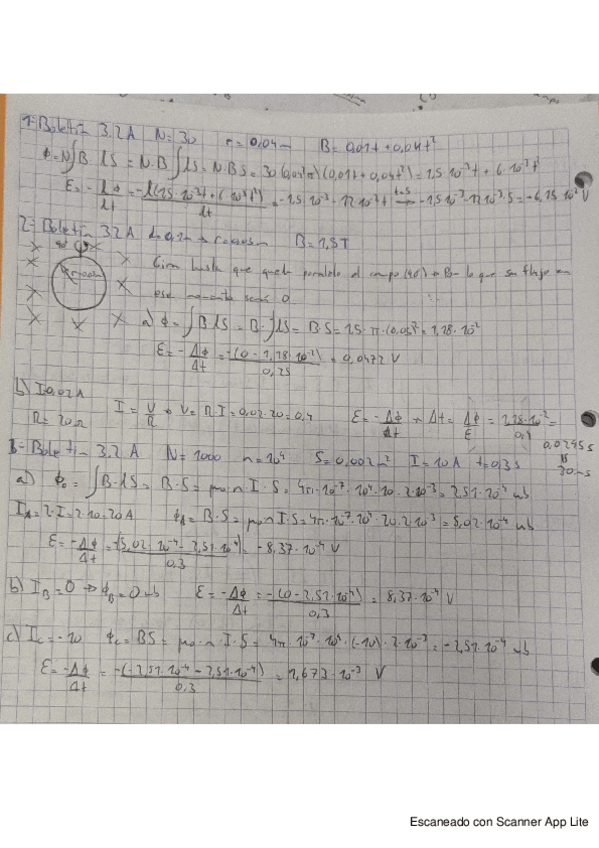 1-Boletín 3.2A N=30 r=0,04m B=0,01t+0,04t²
ϕ=N∫B·dS=N·B∫dS=N·B·S=30(0,04²π)(0,01t+0,04t²)=1,5·10⁻³t+6·10⁻³t²
ε=-dϕ/dt=-d(1,5·10⁻³t+6·10⁻³t²)/dt=-1,5·10⁻³-12·10⁻³t →(t=5) -1,5·10⁻³-12·10⁻³·5=-6,15·10⁻²V
2-Boletín 3.2A d=0,1m → r=0,05m B=1,5T
Gira hasta que quede paralelo al campo B lo que su flujo en
ese momento será 0.
a) ϕ=∫B·dS=B·∫dS=B·S=1,5·π·(0,05)²=1,18·10⁻²
ε=-Δϕ/Δt=-(0-1,18·10⁻²)/0,25=0,0472 V
b) I=0,02A
R=20Ω I=V/R → V=R·I=0,02·20=0,4 ε=-Δϕ/Δt → Δt=Δϕ/ε=1,18·10⁻²/0,4=
0,0295s
30ms
3-Boletín 3.2A N=1000 n=10⁴ S=0,002m² I=10A t=0,3s
a) ϕ₀=∫B·dS=B·S=μ₀·n·I·S=4π·10⁻⁷·10⁴·10·2·10⁻³=2,51·10⁻⁴ wb
I_A=2·I=2·10=20A ϕ_A=B·S=μ₀·n·I·S=4π·10⁻⁷·10⁴·20·2·10⁻³=5,02·10⁻⁴ wb
ε=-Δϕ/Δt=-(5,02·10⁻⁴-2,51·10⁻⁴)/0,3=-8,37·10⁻⁴ V
b) I_B=0 → ϕ_B=0 wb ε=-Δϕ/Δt=-(0-2,51·10⁻⁴)/0,3=8,37·10⁻⁴ V
c) I_C=-10 ϕ_C=BS=μ₀·n·I·S=4π·10⁻⁷·10⁴·(-10)·2·10⁻³=-2,51·10⁻⁴ wb
ε=-Δϕ/Δt=-(-2,51·10⁻⁴-2,51·10⁻⁴)/0,3=1,673·10⁻³ V
Escaneado con Scanner App Lite